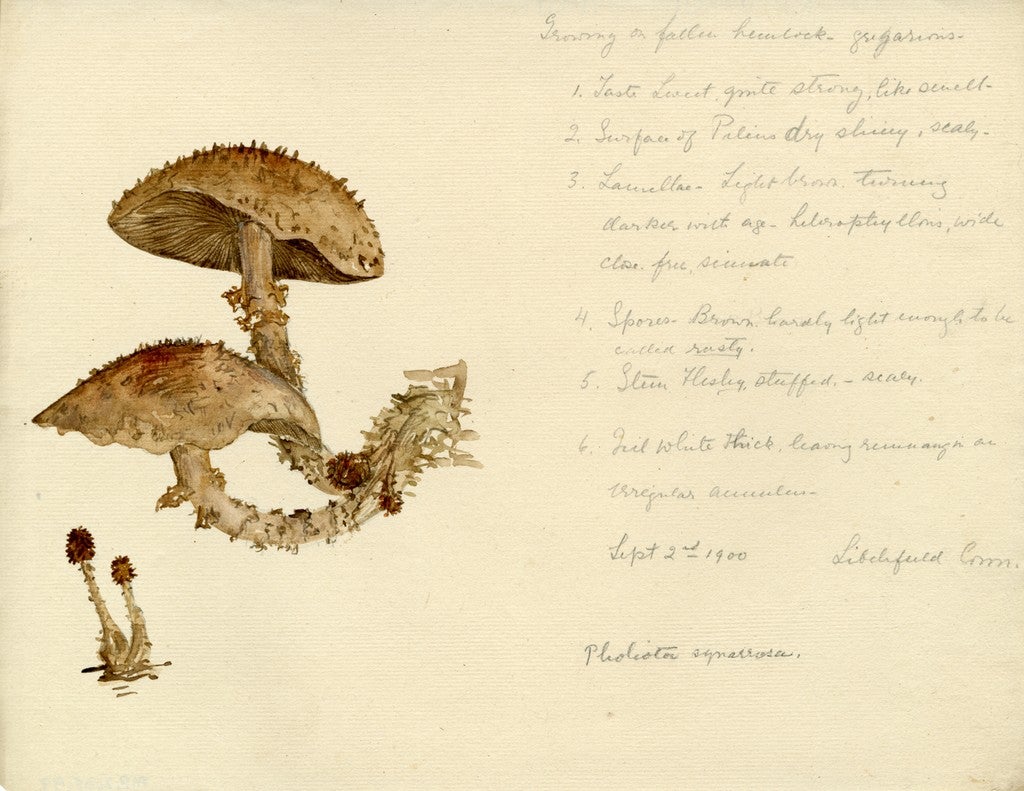 Growing on fallen hemlock - gregarious -
1. Taste Sweet, quite strong, like smell -
2. Surface of Pileus dry shiny, scaly -
3. Lamellae - Light brown turning
darker with age - heterophyllous, wide
close, free, sinuate
4. Spores - Brown hardly light enough to be
called rusty.
5. Stem Fleshy, stuffed, - scaly.
6. Veil white thick, leaving an
irregular annulus -
Sept 2nd 1900 Litchfield Conn.
Pholiota squarrosa.